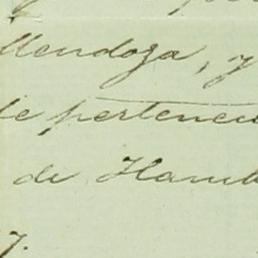 Mendoza, y
de pertenec
de Hamb